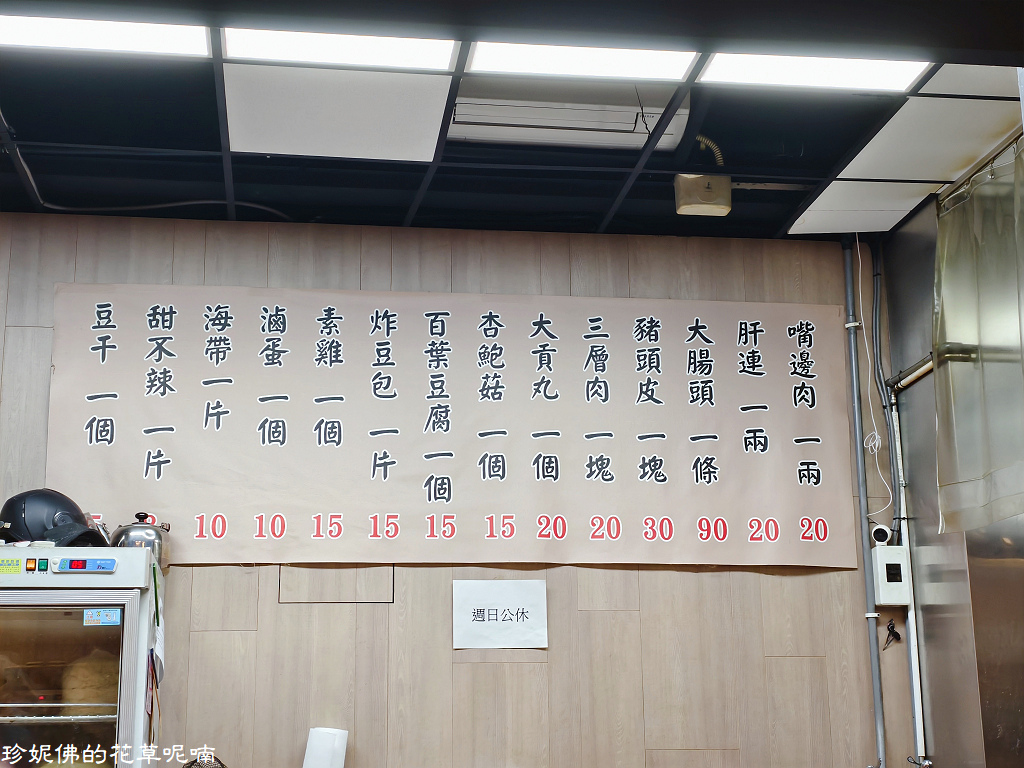 嘴邊肉 一兩 20
肝連 一兩 20
大腸頭 一條 90
豬頭皮 一塊 30
三層肉 一塊 20
大貢丸 一個 20
杏鮑菇 一個 15
百葉豆腐 一個 15
炸豆包 一片 15
素雞 一個 15
滷蛋 一個 10
海帶 一片 10
甜不辣 一片
豆干 一個
週日公休
珍妮佛的花草呢喃